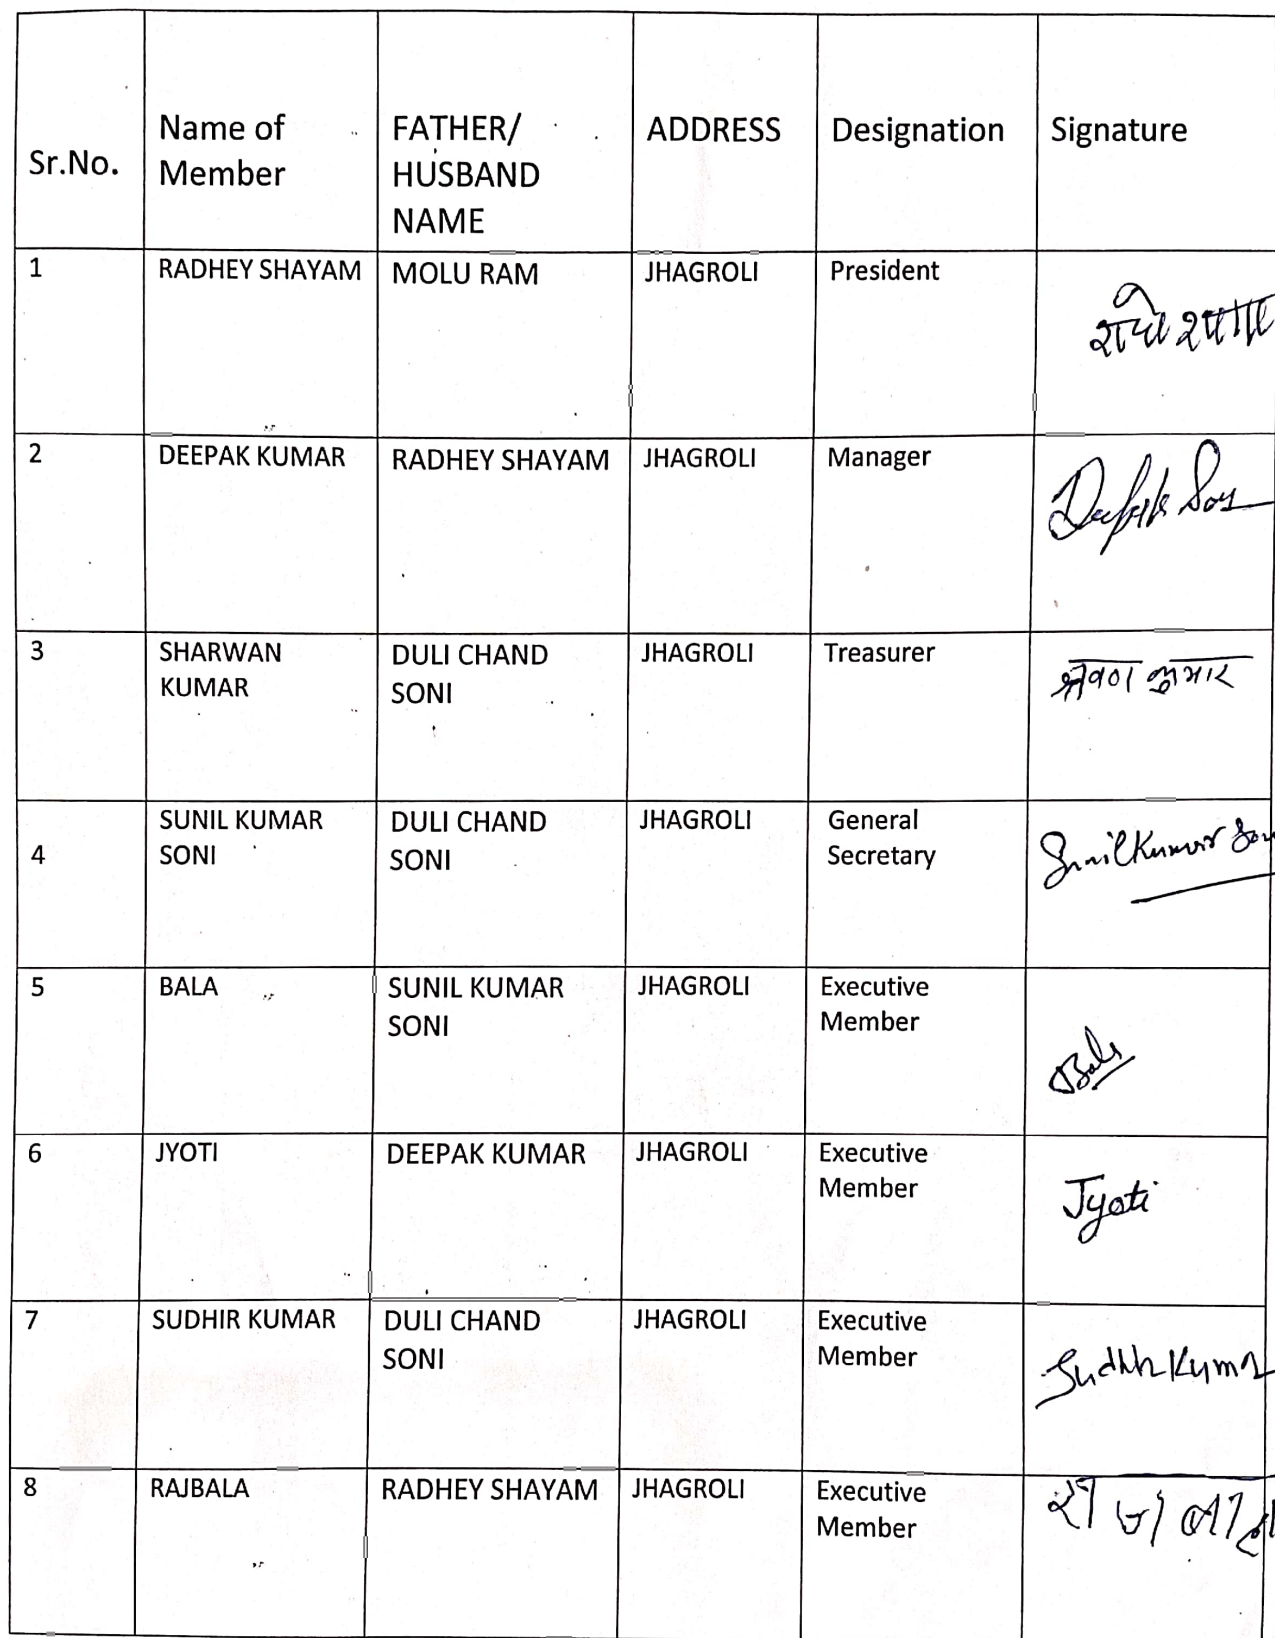 Sr.No. Name of Member FATHER/ HUSBAND NAME ADDRESS Designation Signature
1 RADHEY SHAYAM MOLU RAM JHAGROLI President राधे श्याम
2 DEEPAK KUMAR RADHEY SHAYAM JHAGROLI Manager Deepak
3 SHARWAN KUMAR DULI CHAND SONI JHAGROLI Treasurer श्रवण कुमार
4 SUNIL KUMAR SONI DULI CHAND SONI JHAGROLI General Secretary Sunil Kumar
5 BALA SUNIL KUMAR SONI JHAGROLI Executive Member Bala
6 JYOTI DEEPAK KUMAR JHAGROLI Executive Member Jyoti
7 SUDHIR KUMAR DULI CHAND SONI JHAGROLI Executive Member Sudhir Kumar
8 RAJBALA RADHEY SHAYAM JHAGROLI Executive Member